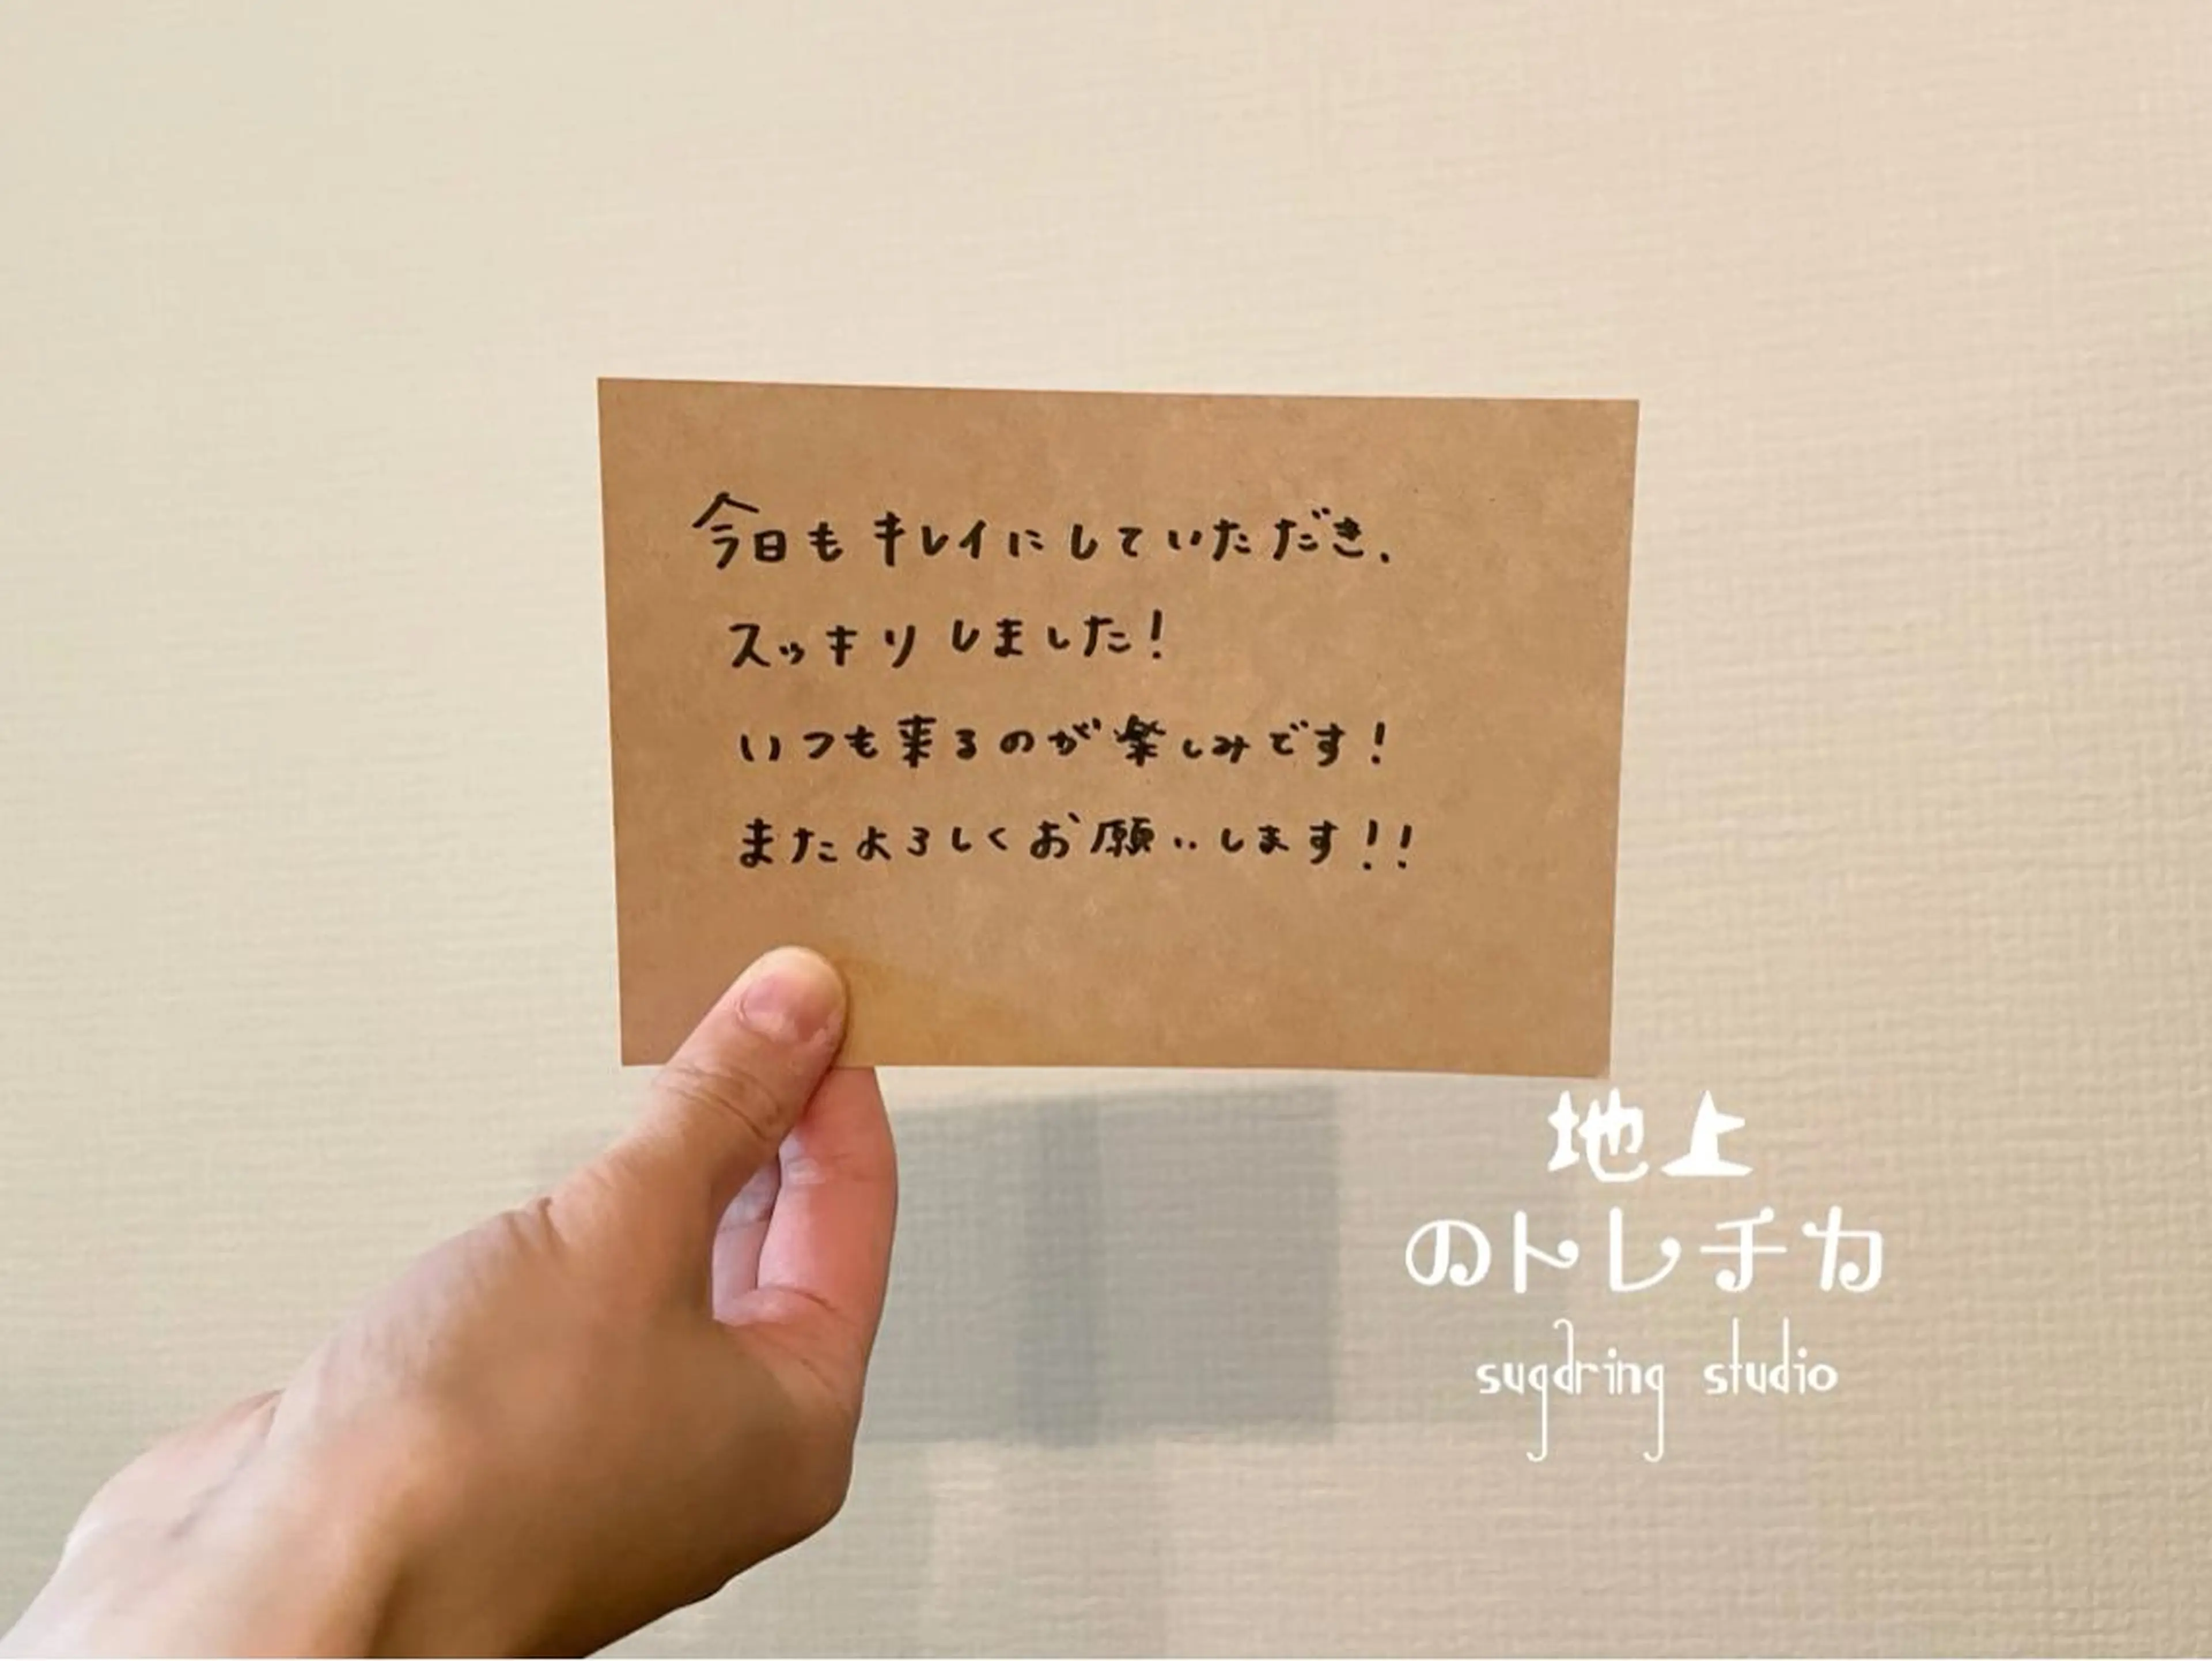 今日もキレイにしていただき、
スッキリしました!
いつも来るのが楽しみです!
またよろしくお願いします!!
地上
のトレチカ
sugdring studio